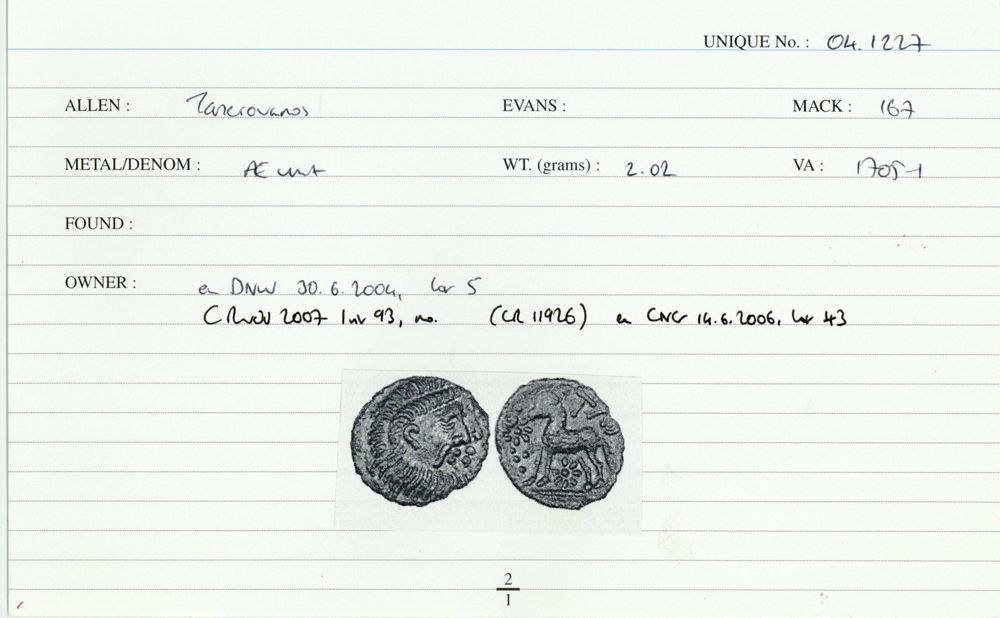 UNIQUE No. : 04.1227
ALLEN : Tasciovanos EVANS : MACK : 167
METAL/DENOM : Æ unit WT. (grams) : 2.02 VA : 1705-1
FOUND :
OWNER : ex DNW 30.6.2004, lot 5
2007 93, no. (CR 11926) ex CNG 14.6.2006, lot 43
2
1